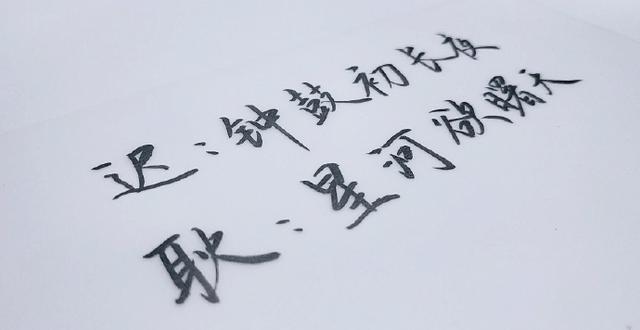 迟：钟鼓初长夜
耿：星河欲曙天